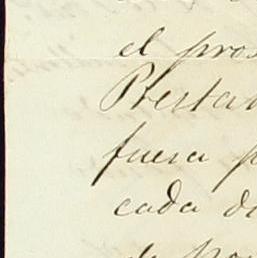 el pros
Prestan
fuera p
cada di
de